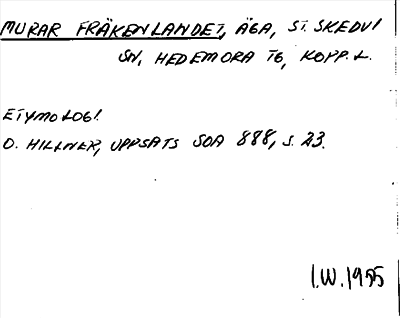 MURAR FRÄKENLANDET, ÄGA, ST. SKEDVI
SN, HEDEMORA TG, KOPP. L.
ETYMOLOGI
O. HILLNER, UPPSATS SOA 888, S. 23.
I.W. 1955